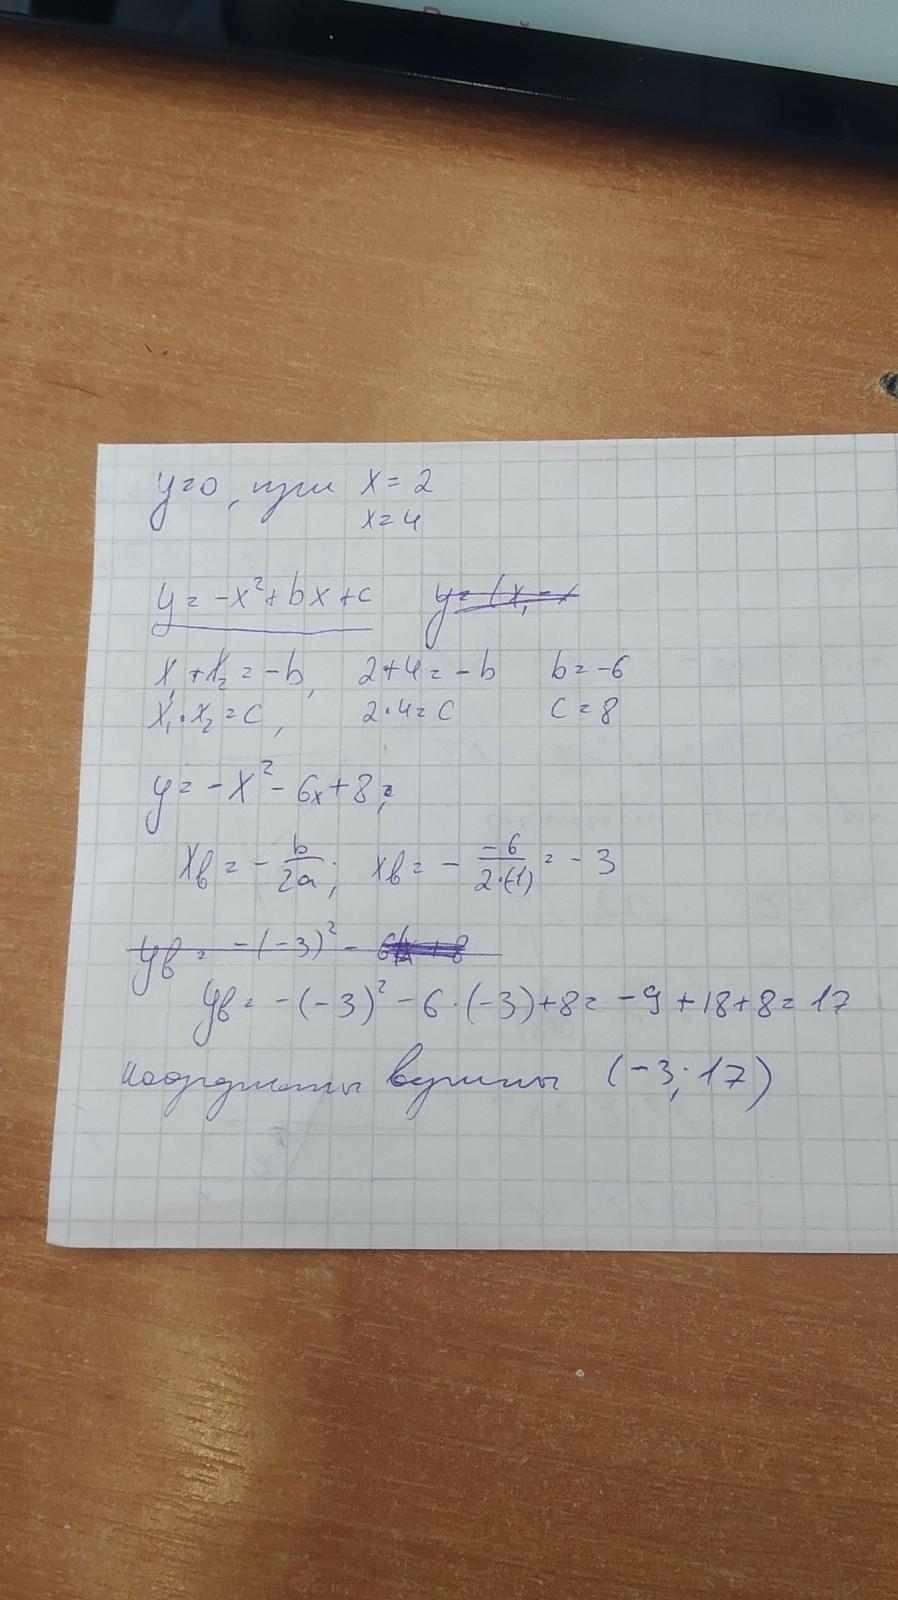 y=0, при x = 2
x=4
y = -x²+bx+c y= (x, - x
x₁+x₂ = -b, 2+4 = -b b = -6
x₁·x₂ = c, 2·4 = c c = 8
y = -x² - 6x + 8;
xв = - b/2a; xв = - -6/2·(-1) = -3
yв = -(-3)² - 6
yв = -(-3)² - 6·(-3)+8 = -9+18+8 = 17
координаты вершины (-3; 17)